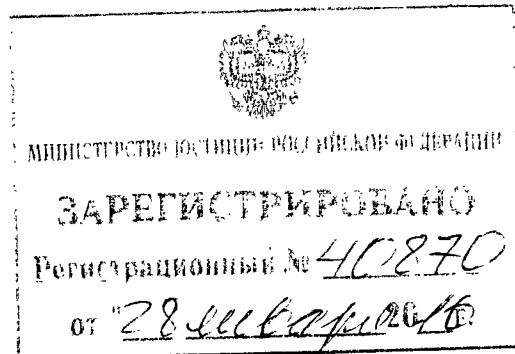 МИНИСТЕРСТВО ЮСТИЦИИ РОССИЙСКОЙ ФЕДЕРАЦИИ
ЗАРЕГИСТРИРОВАНО
Регистрационный № 40870
от "28 января 2016 г.